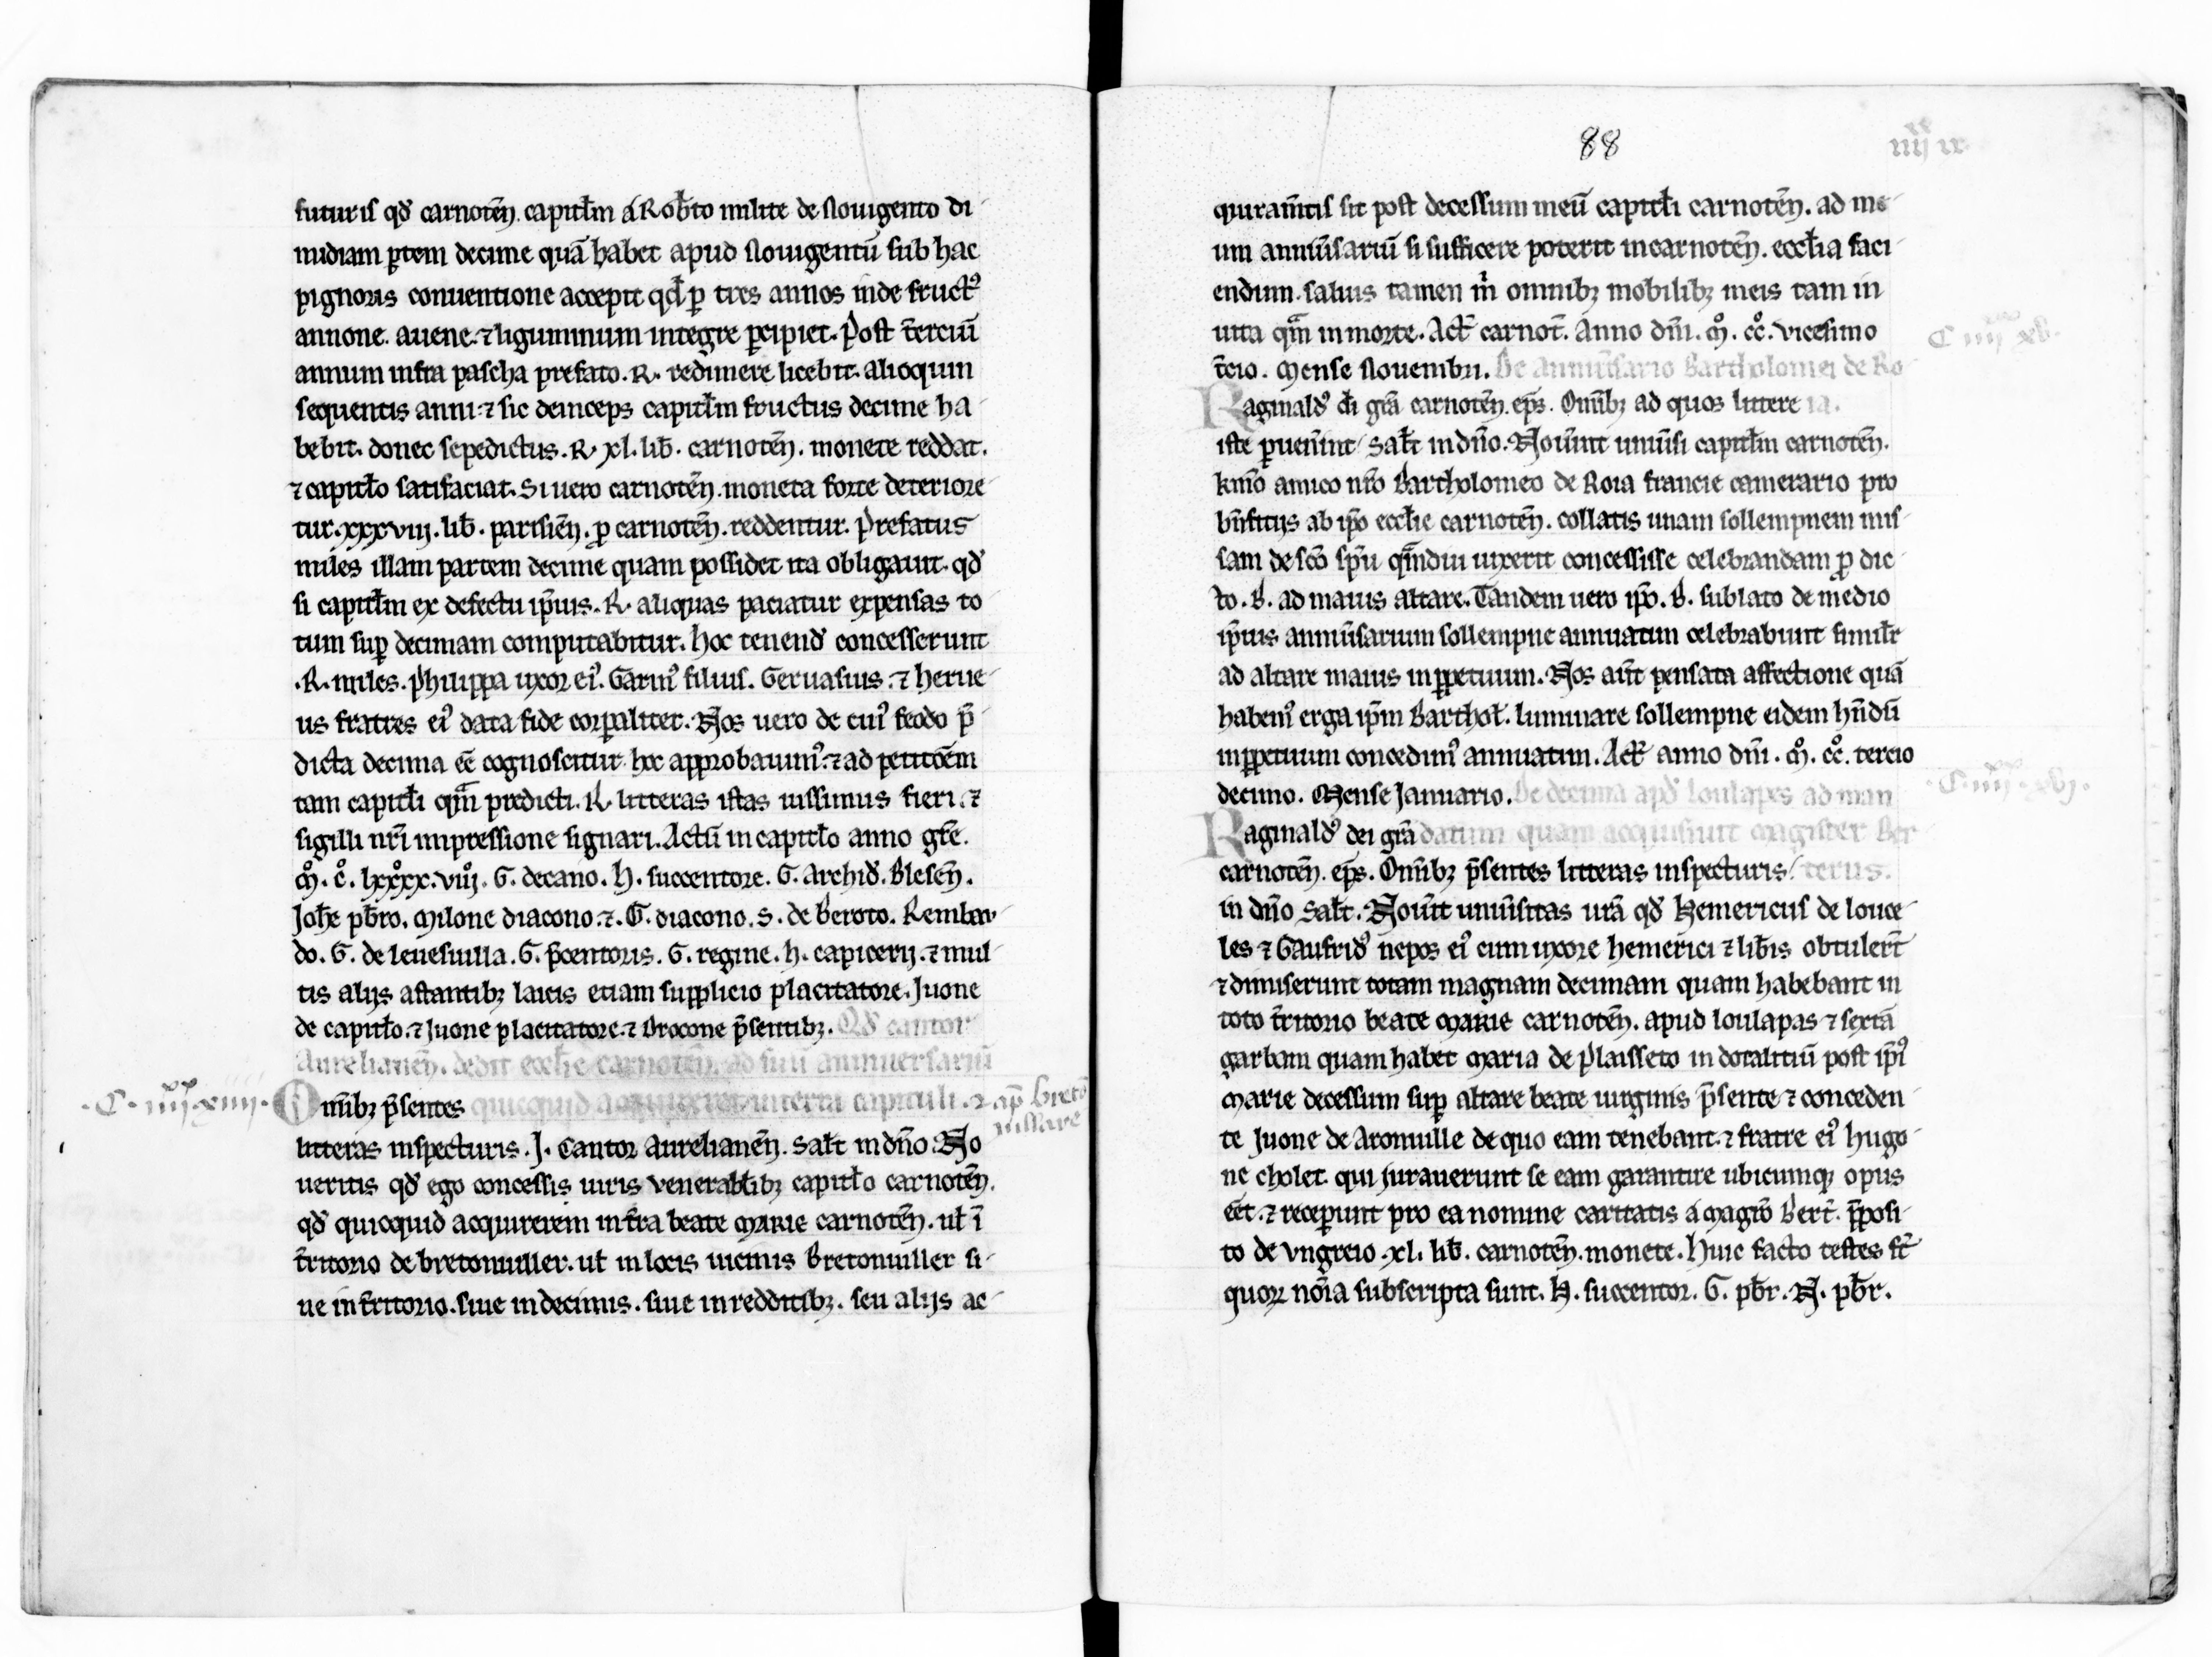 futuris qd̕ carnoteñ. capitƚm á Rob̕to milite de Nouigento di-
midiam ꝑtem decime quā habet apud Nouigentū sub hac
pignoris conuentione accepit qđ ꝑ tres annos inde fructꝰ
annone. auene. ⁊ liguminum integre ꝑcipiet. Post t̄erciū
annum infra pascha prefato .R. redimere licebit. alioquin
sequentis anni ⁊ sic deinceps capitƚm fructus decime ha-
bebit. donec sepedictus .R. xl. lib̄. carnoteñ. monete reddat.
⁊ capitƚo satisfaciat. Si uero carnoteñ. moneta forte deteriore-
tur. xxxviij. lib̄. parisieñ. ꝓ carnoteñ. reddentur. Prefatus
miles illam partem decime quam possidet ita obligauit. qd̕
si capitƚm ex defectu ip̄ius .R. aliquas paciatur expensas to-
tum suꝑ decimam computabitur. Hoc tenend̕ concesserunt
.R. miles. Philippa uxor eiꝰ. Garinꝰ filius. Geruasius. ⁊ herue-
us fratres eiꝰ data fide corꝑaliter. Nos uero de cuiꝰ feodo p̄-
dicta decima eē cognoscitur hoc approbauimꝰ. ⁊ ad petitōem
tam capitƚi qm̄ predicti .R. litteras istas iussimus fieri. ⁊
sigilli nr̄i impressione signari. Actū in capitƚo anno gr̄e.
M̊. C̊. lxxxx. viij. G. decano. H. succentore. G. Archid̕. Bleseñ.
Joħe pb̄ro. Milone diacono. ⁊ .G. diacono. S. de Beroto. Rembau-
do. G. de leuesuilla. G. p̄centoris. G. regine. H. capicerij. ⁊ mul-
tis alijs astantibꝫ laicis etiam supplicio placitatore. Juone
de capitƚo. ⁊ Juone placitatore. ⁊ Drocone p̄sentibꝫ. Qd̕ cantor
Aurelianeñ. dedit eccƚie carnoteñ. ad suū anniuersariū
.C. iiij. xiiij. Om̄ibꝫ p̄sentes quicquid acquireret in terra capituli. ⁊ ap̄ breto
uillare
litteras inspecturis. J. Cantor Aurelianeñ. saƚt in dn̄o. No-
ueritis qd̕ ego concessi uiris venerabilibꝫ capitƚo carnoteñ.
qd̕ quicquid acquirerem in t̄ra beate Marie carnoteñ. uƚ ī
t̄ritorio de bretonuiller. uƚ in locis uicinis Bretonuiller si-
ue in t̄ritorio. siue in decimis. siue in redditibꝫ. seu alijs ac-
88
iiij ix
quiram̄tis sit post decessum meū capitƚi carnoteñ. ad me-
um anniūsariū si sufficere poterit in carnoteñ. eccƚia faci-
endum. saluis tamen m̄ omnibꝫ mobilibꝫ meis tam in
uita qm̄ in morte. Act̄ carnot̄. Anno dn̄i. M̊. CC̊. vicesimo
C iiij xv.
t̄cio. Mense Nouembri. De Anniūsario Bartholomei de Ro
Raginaldꝰ di gr̄a carnoteñ. ep̄s. Om̄ibꝫ ad quos littere ia.
iste ꝑuen̄int saƚt in dn̄o. Nou̇int uniūsi capitƚm carnoteñ.
k̄mo amico nr̄o Bartholomeo de Roia francie camerario pro
bn̄fitijs ab ip̄o eccƚie carnoteñ. collatis unam sollempnem mis-
sam de sc̄o sp̄u qm̄diu uixerit concessisse celebrandam ꝓ dic-
to .B. ad maius altare. Tandem uero ip̄o .B. sublato de medio
ip̄ius anniūsarium sollempne annuatim celebrabunt similr̄
ad altare maius in ꝑpetuum. Nos aūt pensata affectione quā
habemꝰ erga ip̄m Barthoƚ. luminare sollempne eidem hn̄dū
in ꝑpetuum concedimꝰ annuatim. Act̄ anno dn̄i. M̊. CC̊. tercio
decimo. Mense Januario. De decima apd̕ loulapes ad man
.C. iiij. xvj.
Raginaldꝰ dei gr̄a datum quam acquisiuit magister Ber
carnoteñ. ep̄s. Om̄ibꝫ p̄sentes litteras inspecturis terus.
in dn̄o saƚt. Nou̇it uniūsitas ur̄a qd̕ Hemericus de louce-
les ⁊ Gaufridꝰ nepos eiꝰ cum uxore hemerici ⁊ lib̄is obtuler̄t
⁊ dimiserunt totam magnam decimam quam habebant in
toto t̄ritorio beate Marie carnoteñ. apud loulapas ⁊ sextā
garbam quam habet Maria de Plaisseto in dotalitiū post ip̄iꝰ
Marie decessum suꝑ altare beate uirginis p̄sente ⁊ conceden-
te Juone de Aronuille de quo eam tenebant. ⁊ fratre eiꝰ hugo-
ne cholet. qui jurauerunt se eam garantire ubicumqꝫ opus
eēt. ⁊ receꝑunt pro ea nomine caritatis á Magr̄o Bert̄. p̄posi-
to de vngreio .xl. lib̄. carnoteñ. monete. Huic facto testes st̄
quoꝝ noīa subscripta sunt. H. succentor. G. pb̄r. N. pb̄r.